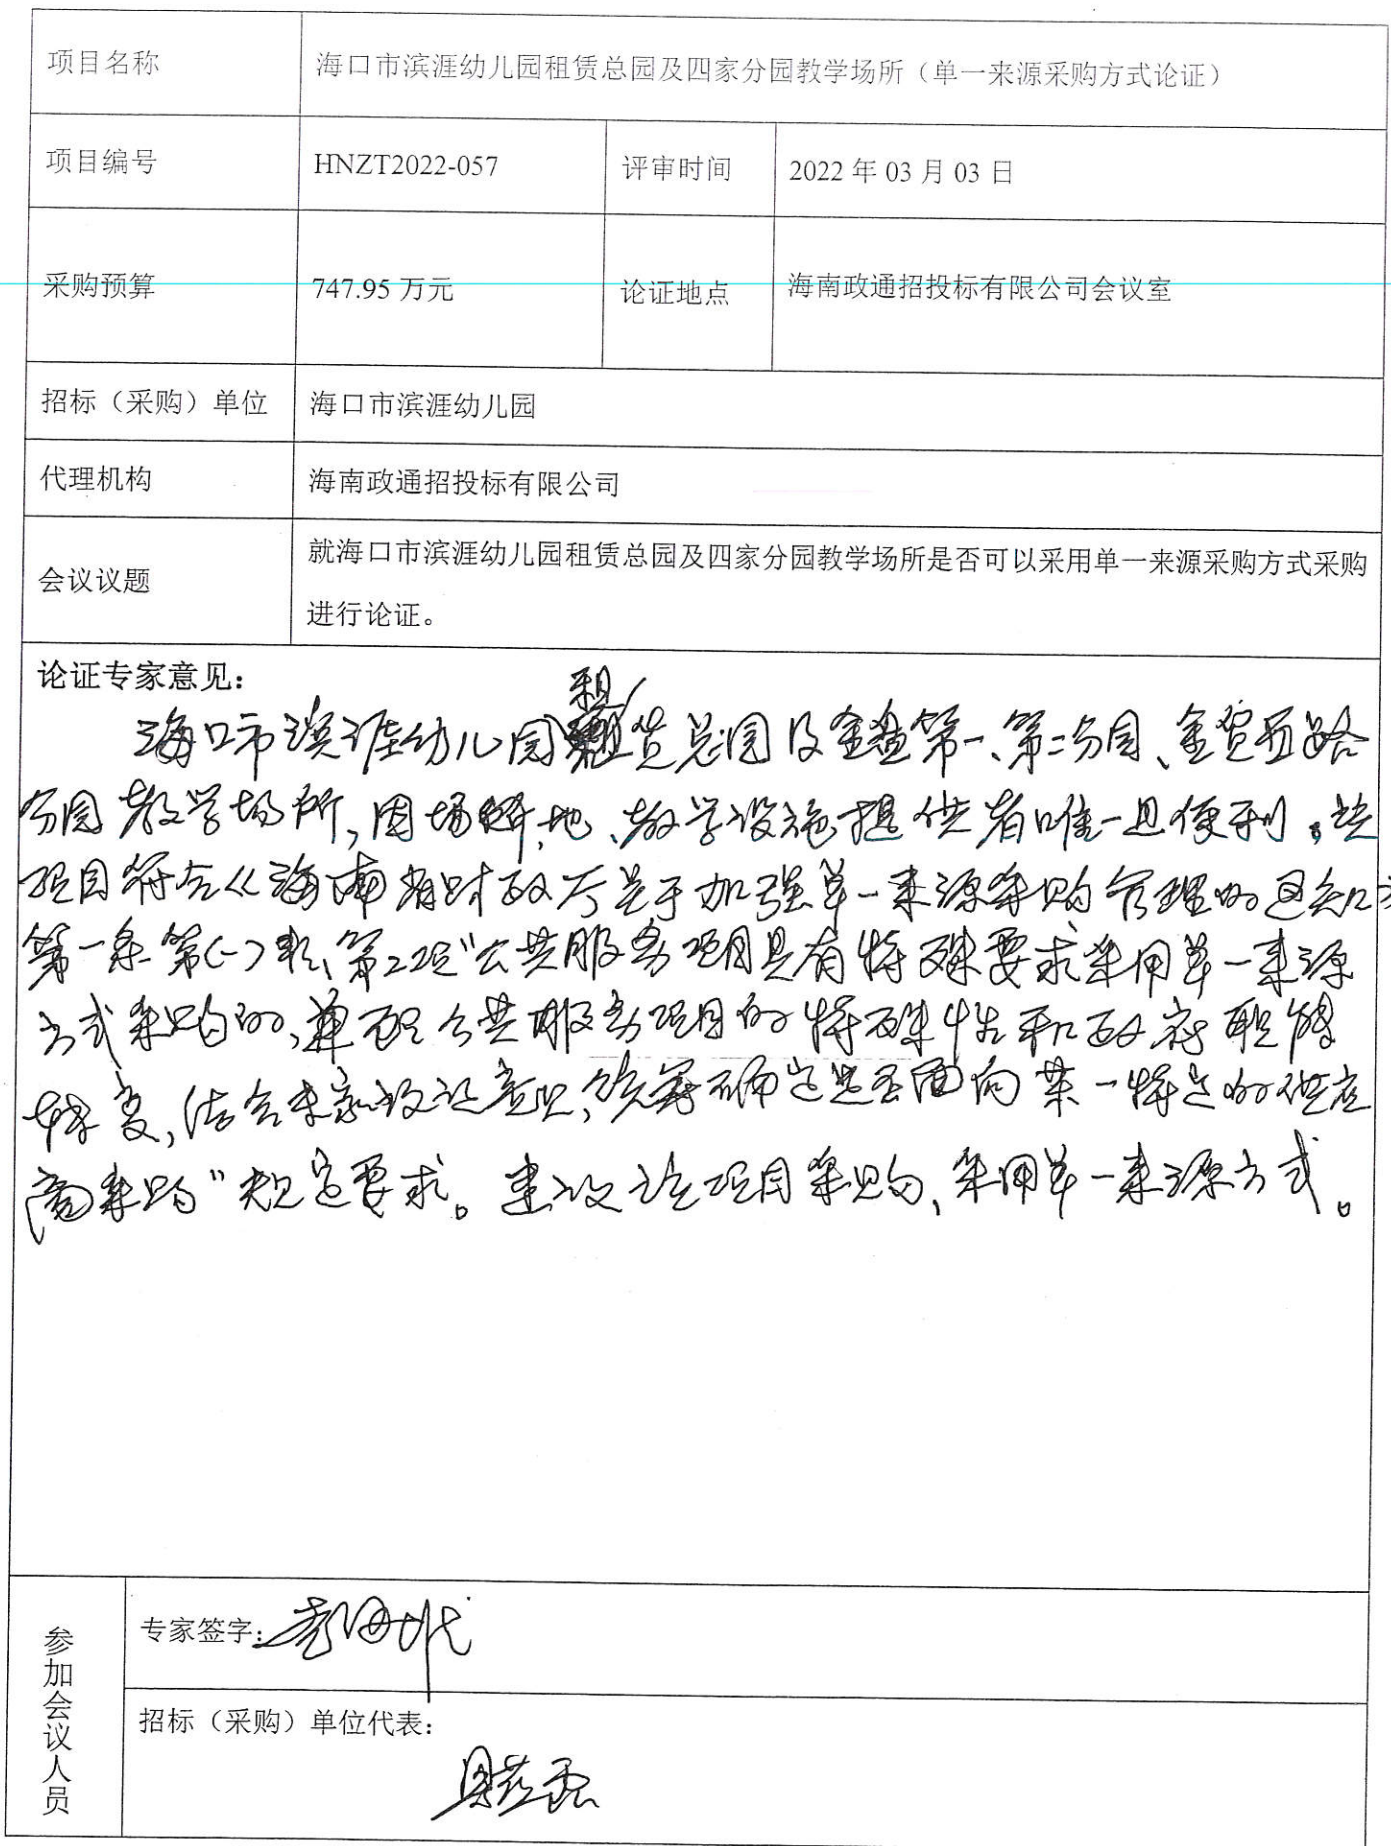 项目名称
海口市滨涯幼儿园租赁总园及四家分园教学场所（单一来源采购方式论证）
项目编号
HNZT2022-057
评审时间
2022 年 03 月 03 日
采购预算
747.95 万元
论证地点
海南政通招投标有限公司会议室
招标（采购）单位
海口市滨涯幼儿园
代理机构
海南政通招投标有限公司
会议议题
就海口市滨涯幼儿园租赁总园及四家分园教学场所是否可以采用单一来源采购方式采购
进行论证。
论证专家意见：
海口市滨涯幼儿园租赁总园及金盘第一、第二分园、金贸西路
分园教学场所，因场地、教学设施提供者唯一且便利。该
项目符合《海南省财政厅关于加强单一来源采购管理的通知》
第一条第(一)款、第2项“公共服务项目具有特殊要求采用单一来源
方式采购的，兼顾公共服务项目的特殊性和政府职能
转变，结合专家论证意见，统筹确定是否面向某一特定的供应
商采购”规定要求。建议该项目采购，采用单一来源方式。
参加会议人员
专家签字：
招标（采购）单位代表：